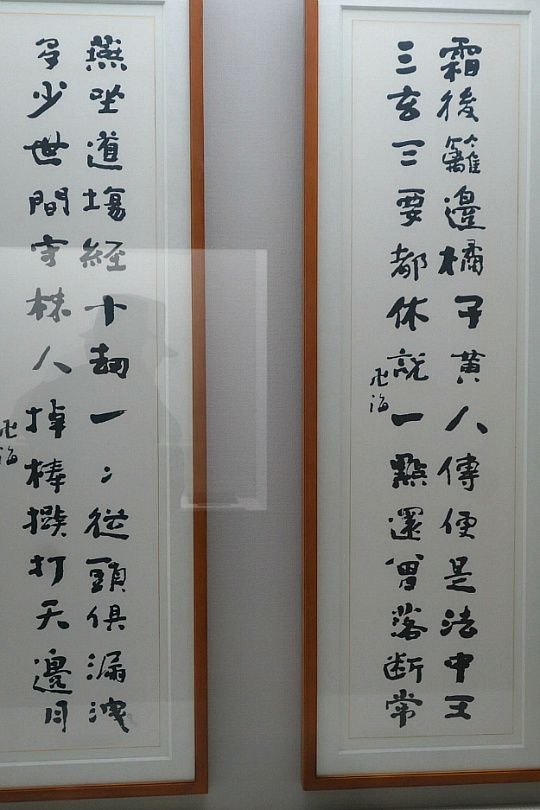 霜後籬邊橘子黃人傳便是法中王
三玄三要都休說一點還曾落斷常
燕坐道場經十劫一々從頭俱漏洩
多少世間守株人掉棒擬打天邊月